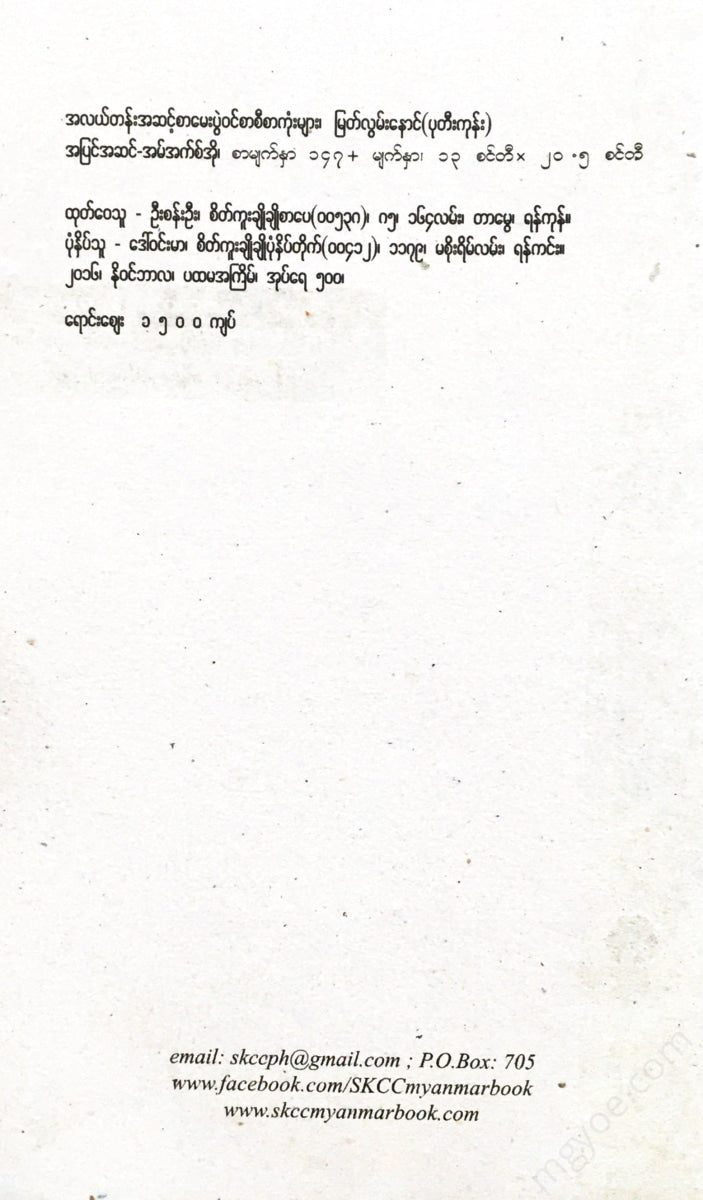 အလယ်တန်းအဆင့်စာမေးပွဲဝင်စာစီစာကုံးများ၊ မြတ်လွမ်းနောင်(ပုတီးကုန်း)
အပြင်အဆင်-အမ်အက်စ်အို၊ စာမျက်နှာ ၁၄၇+ မျက်နှာ၊ ၁၃ စင်တီ× ၂၀.၅ စင်တီ
ထုတ်ဝေသူ - ဦးစန်းဦး၊ စိတ်ကူးချိုချိုစာပေ(၀၀၅၃၈)၊ ၈၅၊ ၁၆၄လမ်း၊ တာမွေ၊ ရန်ကုန်။
ပုံနှိပ်သူ - ဒေါ်ဝင်းမာ၊ စိတ်ကူးချိုချိုပုံနှိပ်တိုက်(၀၀၄၁၂)၊ ၁၁၇၉၊ မစိုးရိမ်လမ်း၊ ရန်ကင်း။
၂၀၁၆၊ နိုဝင်ဘာလ၊ ပထမအကြိမ်၊ အုပ်ရေ ၅၀၀၊
ရောင်းဈေး ၁ ၅ ၀ ၀ ကျပ်
email: skccph@gmail.com ; P.O.Box: 705
www.facebook.com/SKCCmyanmarbook
www.skccmyanmarbook.com
mgyoe.com